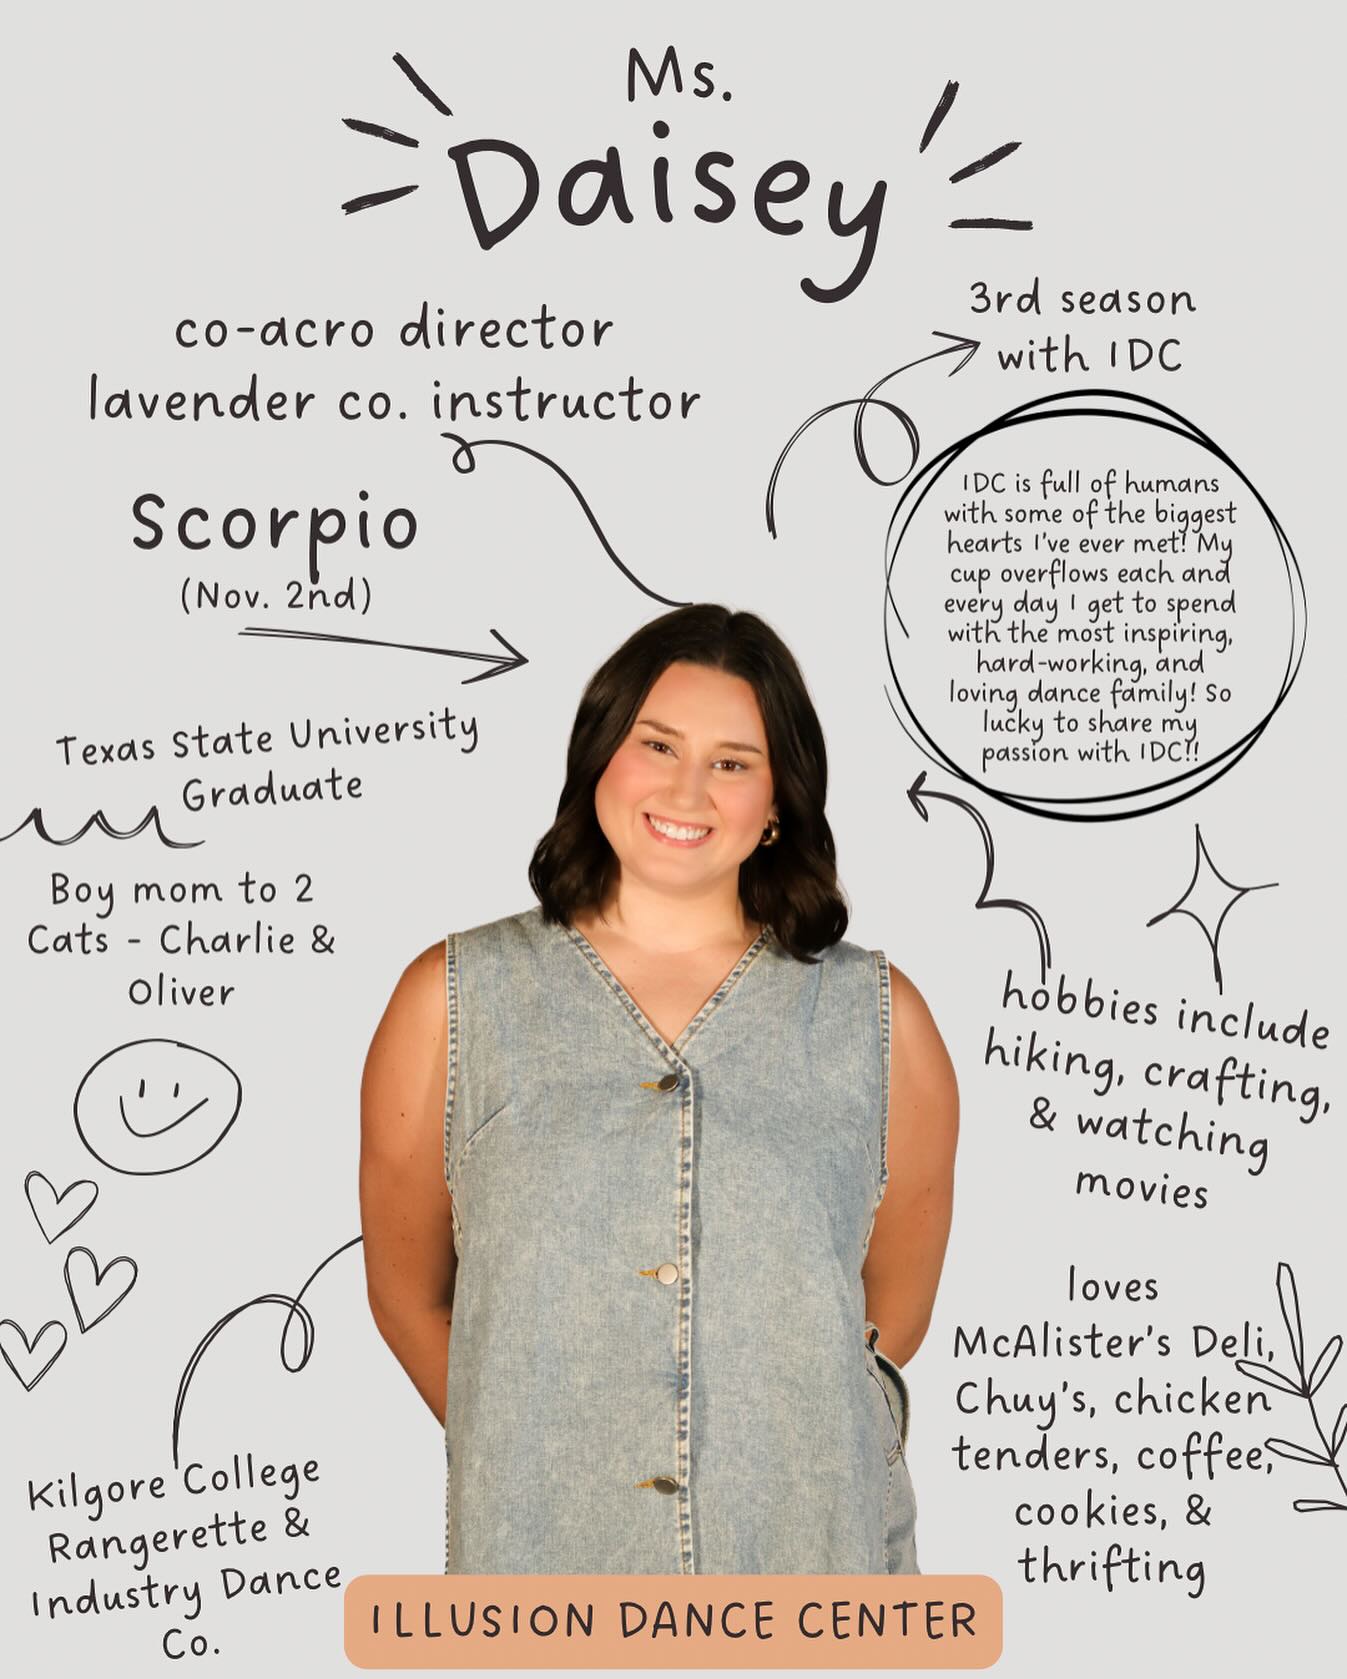 Ms.
Daisey
co-acro director
lavender co. instructor
3rd season
with IDC
Scorpio
(Nov. 2nd)
IDC is full of humans
with some of the biggest
hearts I've ever met! My
cup overflows each and
every day I get to spend
with the most inspiring,
hard-working, and
loving dance family! So
lucky to share my
passion with IDC!!
Texas State University
Graduate
Boy mom to 2
Cats - Charlie &
Oliver
hobbies include
hiking, crafting,
& watching
movies
loves
McAlister's Deli,
Chuy's, chicken
tenders, coffee,
cookies, &
thrifting
Kilgore College
Rangerette &
Industry Dance
Co.
ILLUSION DANCE CENTER